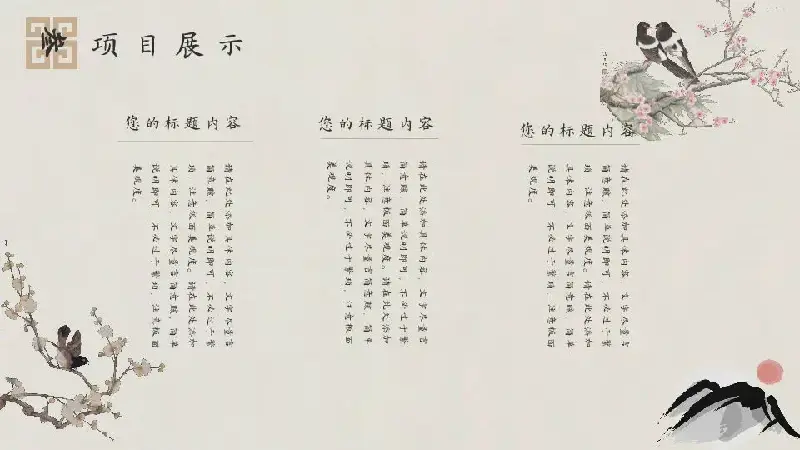 叁
项目展示
您的标题内容
请在此处添加具体内容，文字尽量言
简意赅，简单说明即可，不必过于繁
琐，注意版面美观度。请在此处添加
具体内容，文字尽量言简意赅，简单
说明即可，不必过于繁琐，注意版面
美观度。
您的标题内容
请在此处添加具体内容，文字尽量言
简意赅，简单说明即可，不必过于繁
琐，注意版面美观度。请在此处添加
具体内容，文字尽量言简意赅，简单
说明即可，不必过于繁琐，注意版面
美观度。
您的标题内容
请在此处添加具体内容，文字尽量言
简意赅，简单说明即可，不必过于繁
琐，注意版面美观度。请在此处添加
具体内容，文字尽量言简意赅，简单
说明即可，不必过于繁琐，注意版面
美观度。